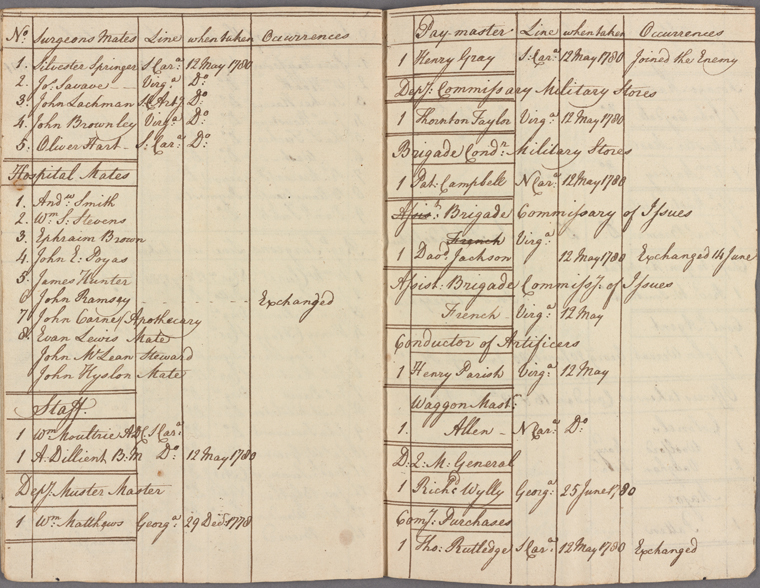 No. Surgeons Mates Line when taken Occurrences
1. Silvester Springer S Cara: 12 May 1780
2. Jos. Savave Virga: Do
3. John Lachman S C Arty Do
4. John Brownley Virga: Do
5. Oliver Hart S: Cara: Do
Hospital Mates
1. Andw Smith
2. Wm S: Stevens
3. Ephraim Brown
4. John E: Poyas
5. James Hunter
6 John Ramsay Exchanged
7 John Carne Apothecary
8. Evan Lewis Mate
John McLean Steward
John Hyslon Mate
Staff.
1 Wm Moultrie A D C S Cara:
1 A Dillient B: M Do: 12 May 1780
Depy: Muster Master
1 Wm Matthews Georga: 29 Decr 1778
Pay-master Line when taken Occurrences
1 Henry Gray S: Cara: 12 May 1780 Joined the Enemy
Depy: Commissary Military Stores
1 Thornton Taylor Virga: 12 May 1780
Brigade Condr: Military Stores
1 Pat: Campbell N Cara: 12 May 1780
Assist: Brigade Commissary of Issues
French Virga:
1 Davd. Jackson 12 May 1780 Exchanged 14 June
Assist: Brigade Commissy: of Issues
French Virga: 12 May
Conductor of Artificers
1 Henry Parish Virga: 12 May
Waggon Mastr:
1. Allen N Cara: Do
D: Q: M: General
1 Richd Wylly Georga: 25 June 1780
Comy: Purchases
1 Tho: Rutledge S Cara: 12 May 1780 Exchanged